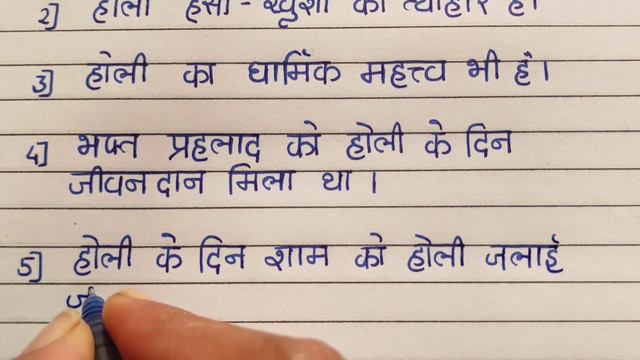 2] होली हंसी - खुशी का त्योहार है।
3] होली का धार्मिक महत्त्व भी है।
4] भक्त प्रहलाद को होली के दिन
जीवनदान मिला था ।
5] होली के दिन शाम को होली जलाई
ज